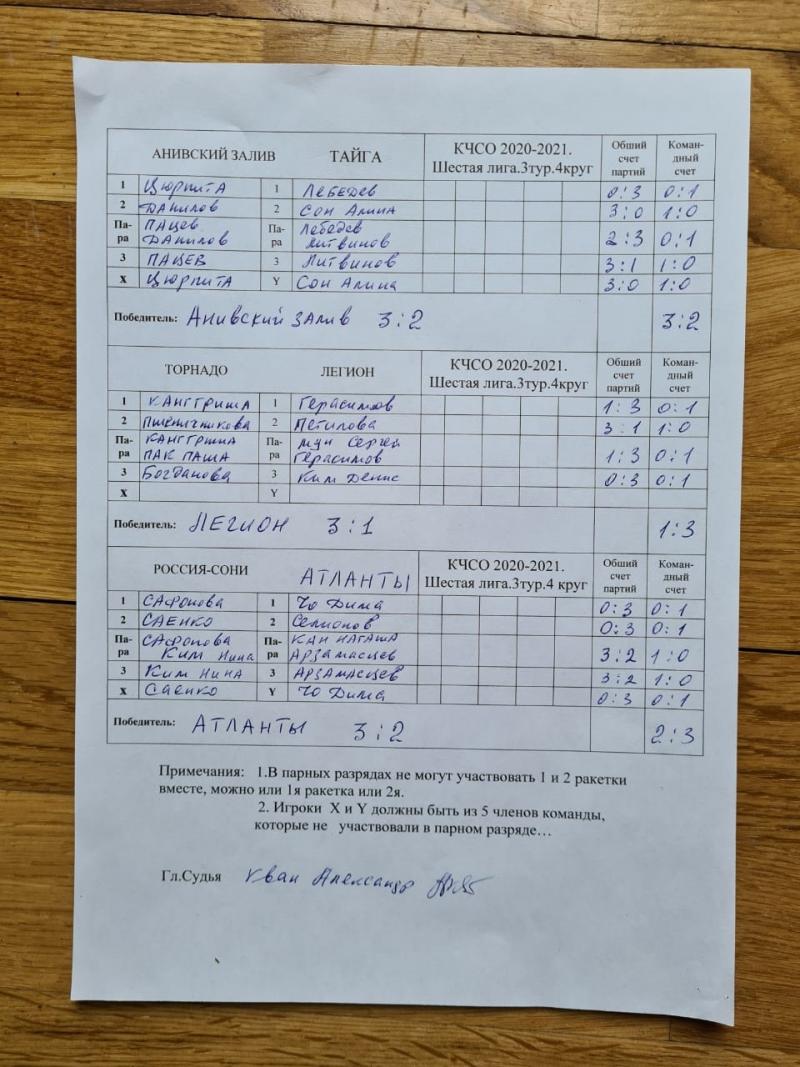 АНИВСКИЙ ЗАЛИВ ТАЙГА КЧСО 2020-2021. Шестая лига.3тур.4круг Общий счет партий Коман-дный счет
1 Цюрпита 1 Лебедев 0:3 0:1
2 Данилов 2 Сон Алина 3:0 1:0
Па-ра Пацев Данилов Па-ра Лебедев Литвинов 2:3 0:1
3 Пацев 3 Литвинов 3:1 1:0
X Цюрпита Y Сон Алина 3:0 1:0
Победитель: Анивский залив 3:2 3:2
ТОРНАДО ЛЕГИОН КЧСО 2020-2021. Шестая лига.3тур.4круг Общий счет партий Коман-дный счет
1 Канг Гриша 1 Герасимов 1:3 0:1
2 Пшеничникова 2 3:1 1:0
Па-ра Канг Гриша Пак Паша Па-ра Мун Сергей Герасимов 1:3 0:1
3 Богданова 3 Ким Денис 0:3 0:1
X Y
Победитель: ЛЕГИОН 3:1 1:3
РОССИЯ-СОНИ АТЛАНТЫ КЧСО 2020-2021. Шестая лига.3тур.4 круг Общий счет партий Коман-дный счет
1 Сафонова 1 Чо Дима 0:3 0:1
2 Саенко 2 0:3 0:1
Па-ра Сафонова Ким Нина Па-ра Кан Наташа Арзамасцев 3:2 1:0
3 Ким Нина 3 Арзамасцев 3:2 1:0
X Саенко Y Чо Дима 0:3 0:1
Победитель: АТЛАНТЫ 3:2 2:3
Примечания: 1.В парных разрядах не могут участвовать 1 и 2 ракетки
вместе, можно или 1я ракетка или 2я.
2. Игроки X и Y должны быть из 5 членов команды,
которые не участвовали в парном разряде…
Гл.Судья Кван Александр